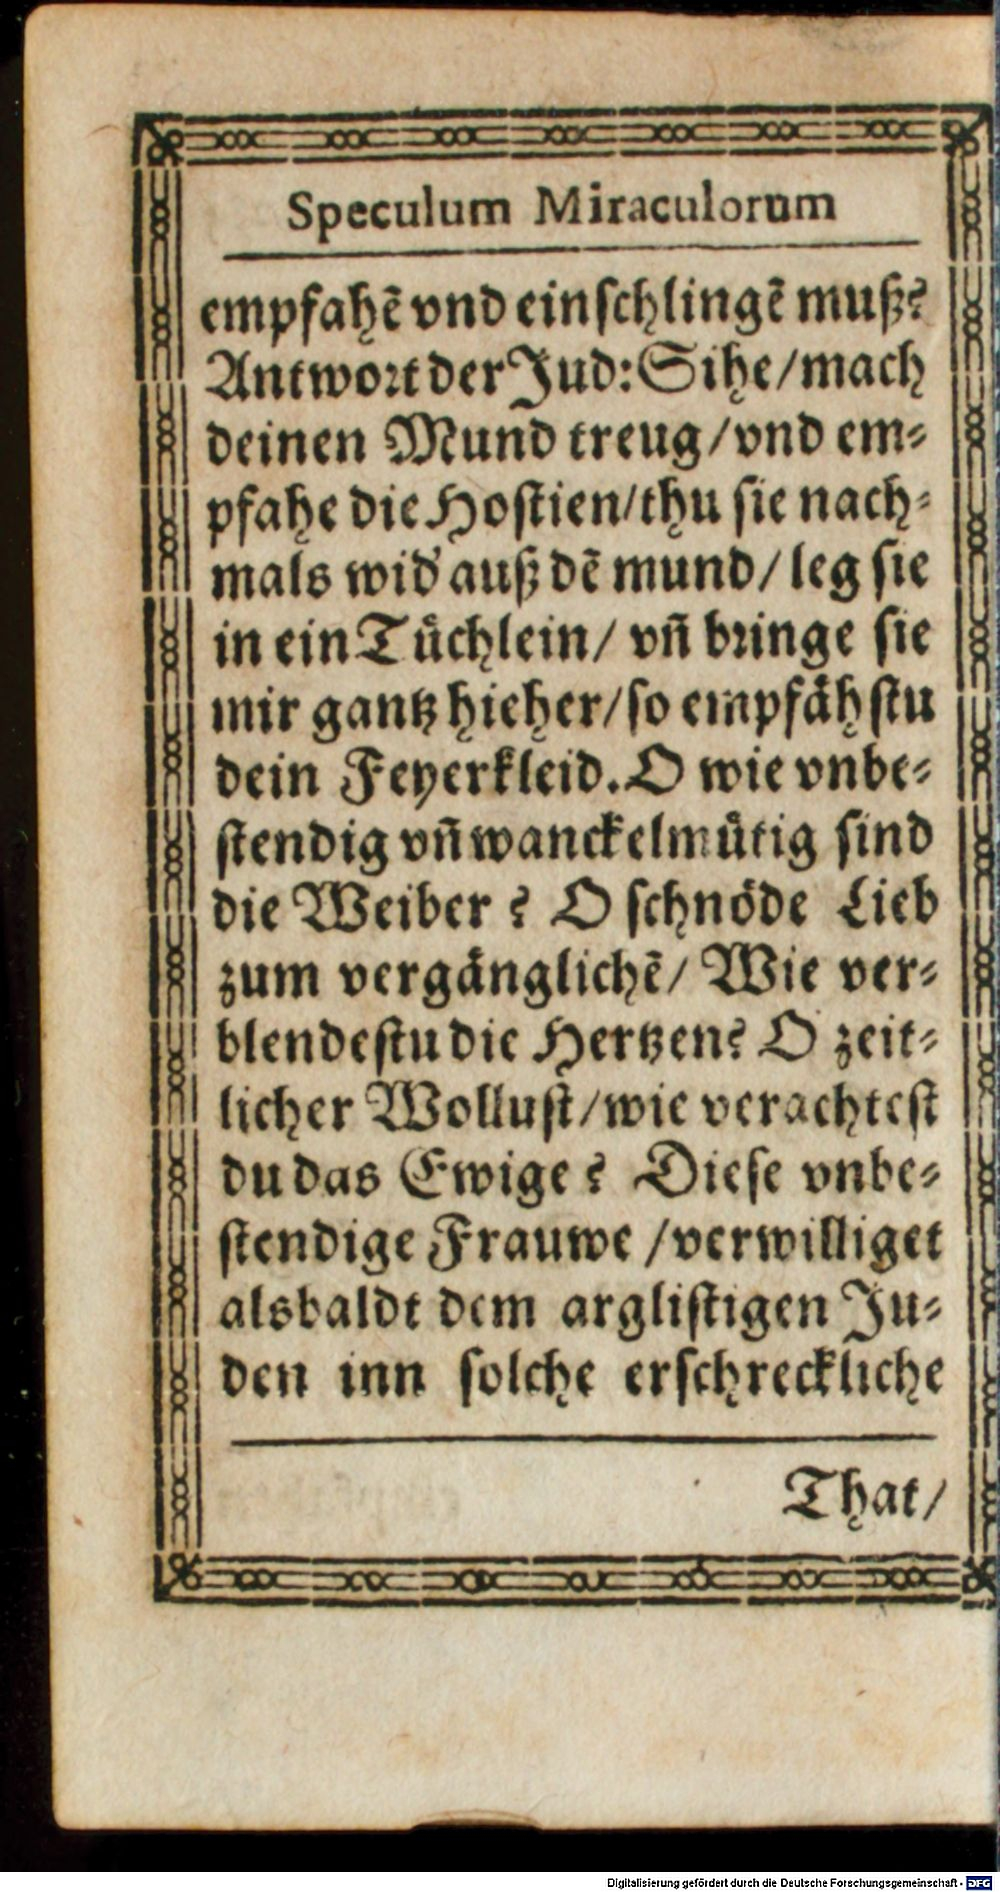 Speculum Miraculorum
empfahẽ vnd einschlingẽ muß?
Antwort der Jud: Sihe / mach
deinen Mund treug / vnd em⸗
pfahe die Hostien / thu sie nach⸗
mals wid' auß dẽ mund / leg sie
in ein Tuͤchlein / vñ bringe sie
mir gantz hieher / so empfaͤhstu
dein Feyerkleid. O wie vnbe⸗
stendig vñ wanckelmuͤtig sind
die Weiber? O schnoͤde Lieb
zum vergaͤnglichẽ / Wie ver⸗
blendestu die Hertzen? O zeit⸗
licher Wollust / wie verachtest
du das Ewige? Diese vnbe⸗
stendige Frauwe / verwilliget
alsbaldt dem arglistigen Ju⸗
den inn solche erschreckliche
That /
Digitalisierung gefördert durch die Deutsche Forschungsgemeinschaft - DFG